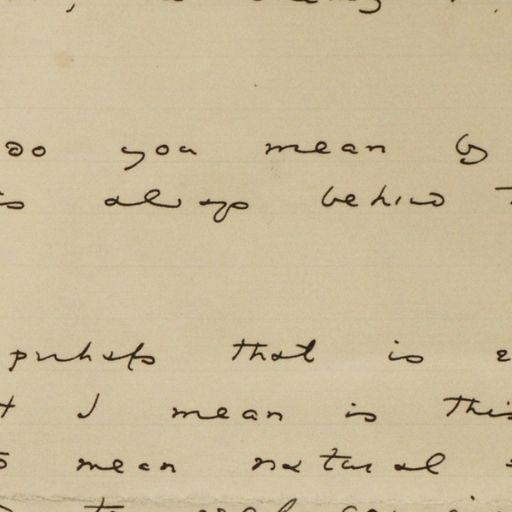 do you mean by
is always behind
perhaps that is
I mean is this
mean natural